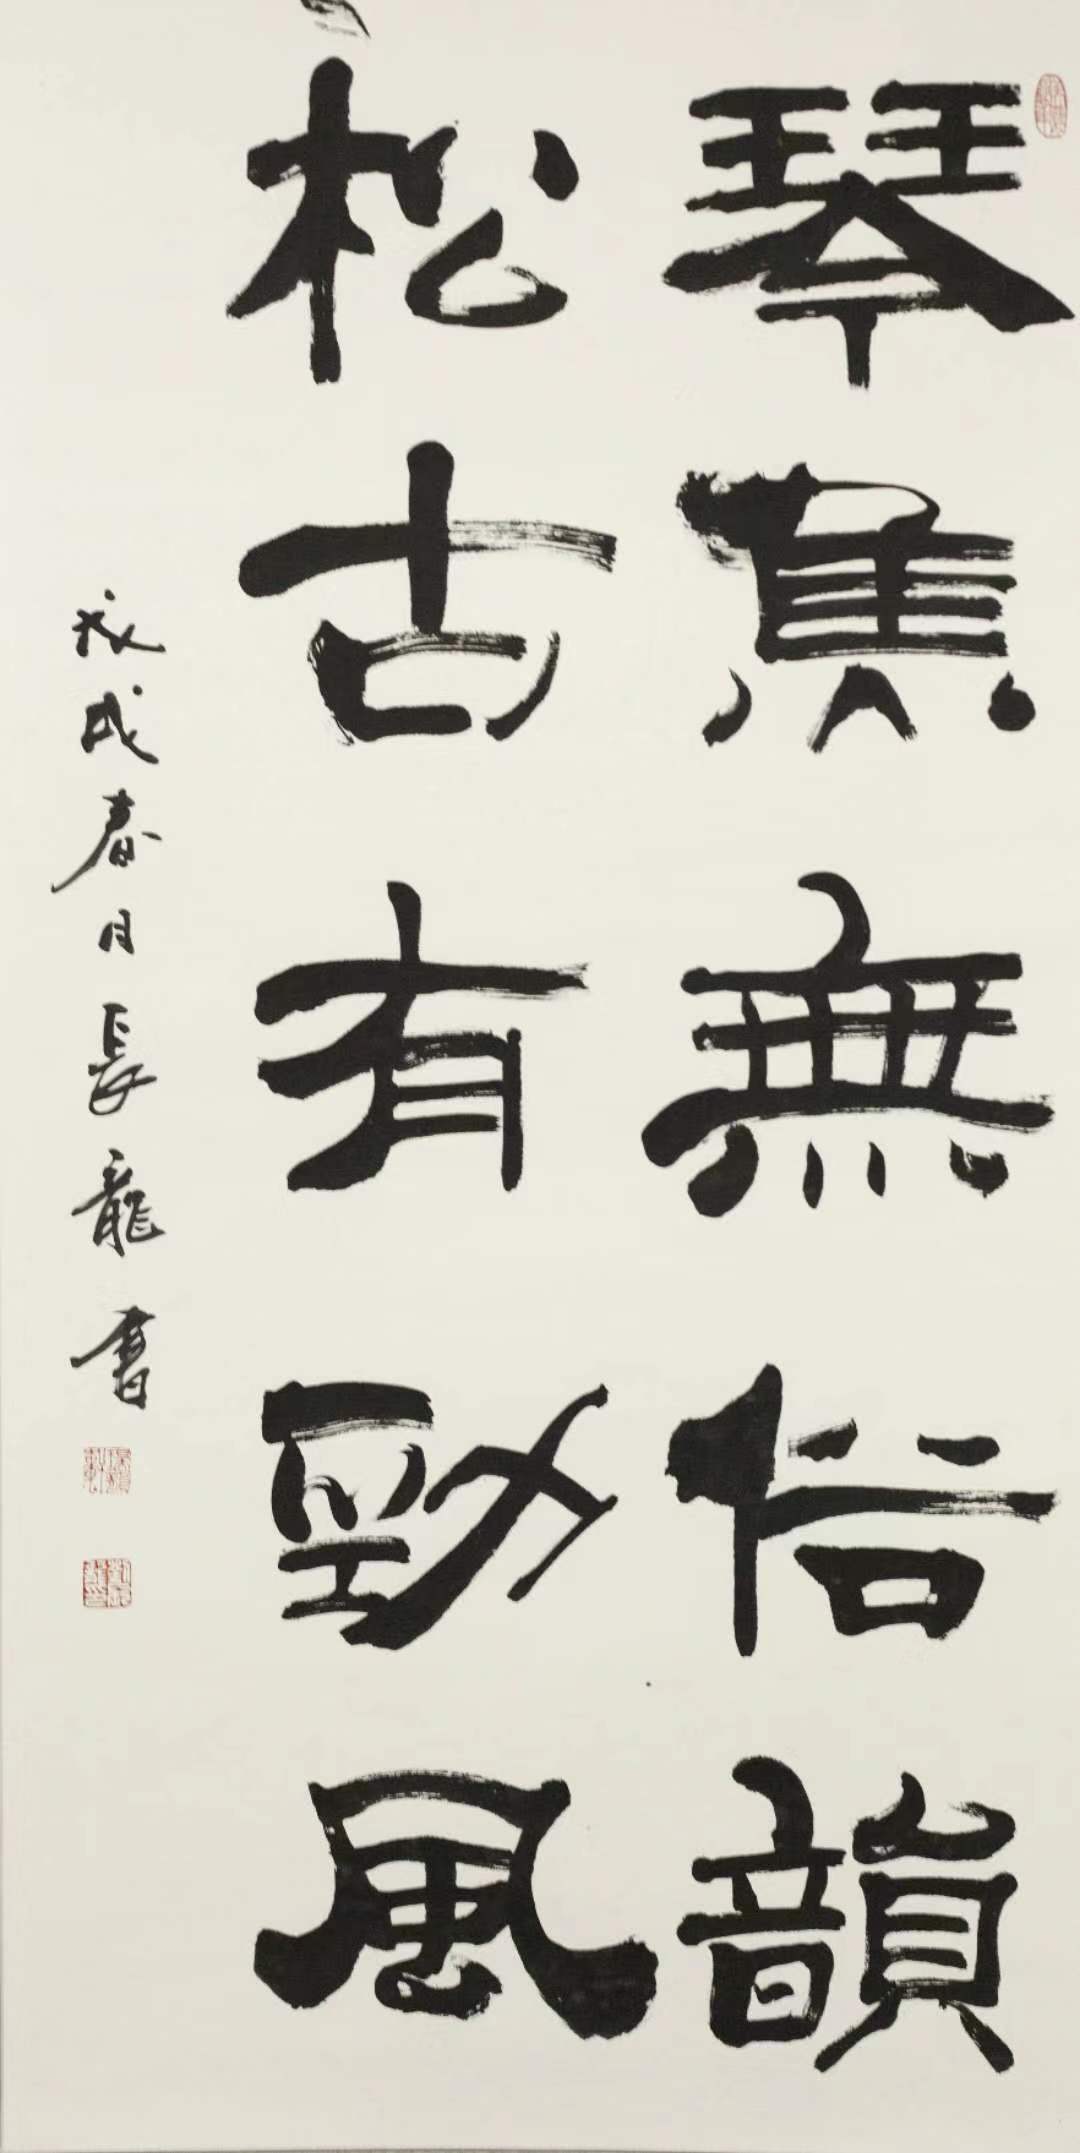 琴焦無俗韻
松古有勁風
戊戌春月長龍書